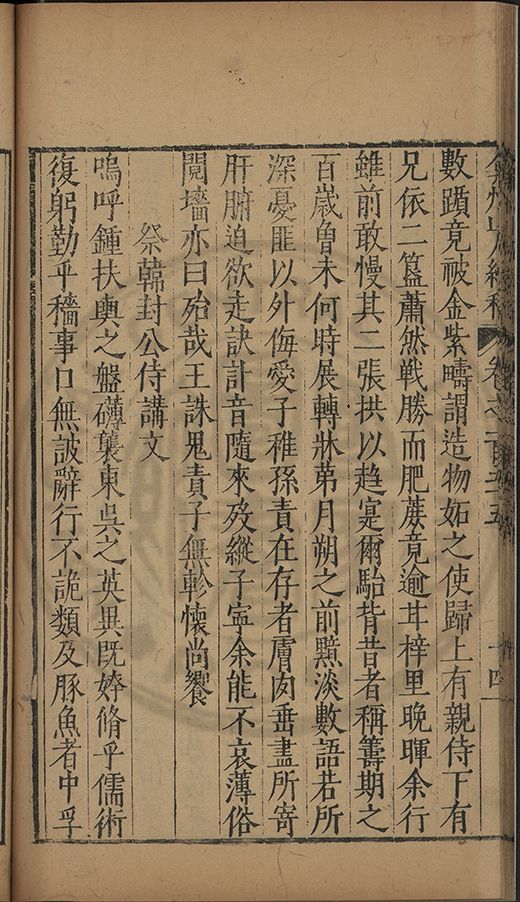 弇州山人續稿 卷之一百五十五 十四
數躓竟被金紫疇謂造物妬之使歸上有親侍下有
兄依二簋蕭然戰勝而肥蔗竟逾耳梓里晚暉余行
雖前敢慢其二張拱以趋寔爾駘背昔者稱籌期之
百歲曾未何時展轉牀第月朔之前黯淡數語若所
深憂匪以外侮愛子稚孫責在存者膚肉垂盡所寄
肝腑迫欲走訣訃音隨來歿縱子寧余能不哀薄俗
鬩墻亦曰殆哉王誅鬼責子無軫懷尚饗
祭韓封公侍講文
嗚呼鍾扶輿之盤礴襲東吳之英異既婞脩乎儒術
復躬勤乎穡事口無詖辭行不詭類及豚魚者中孚